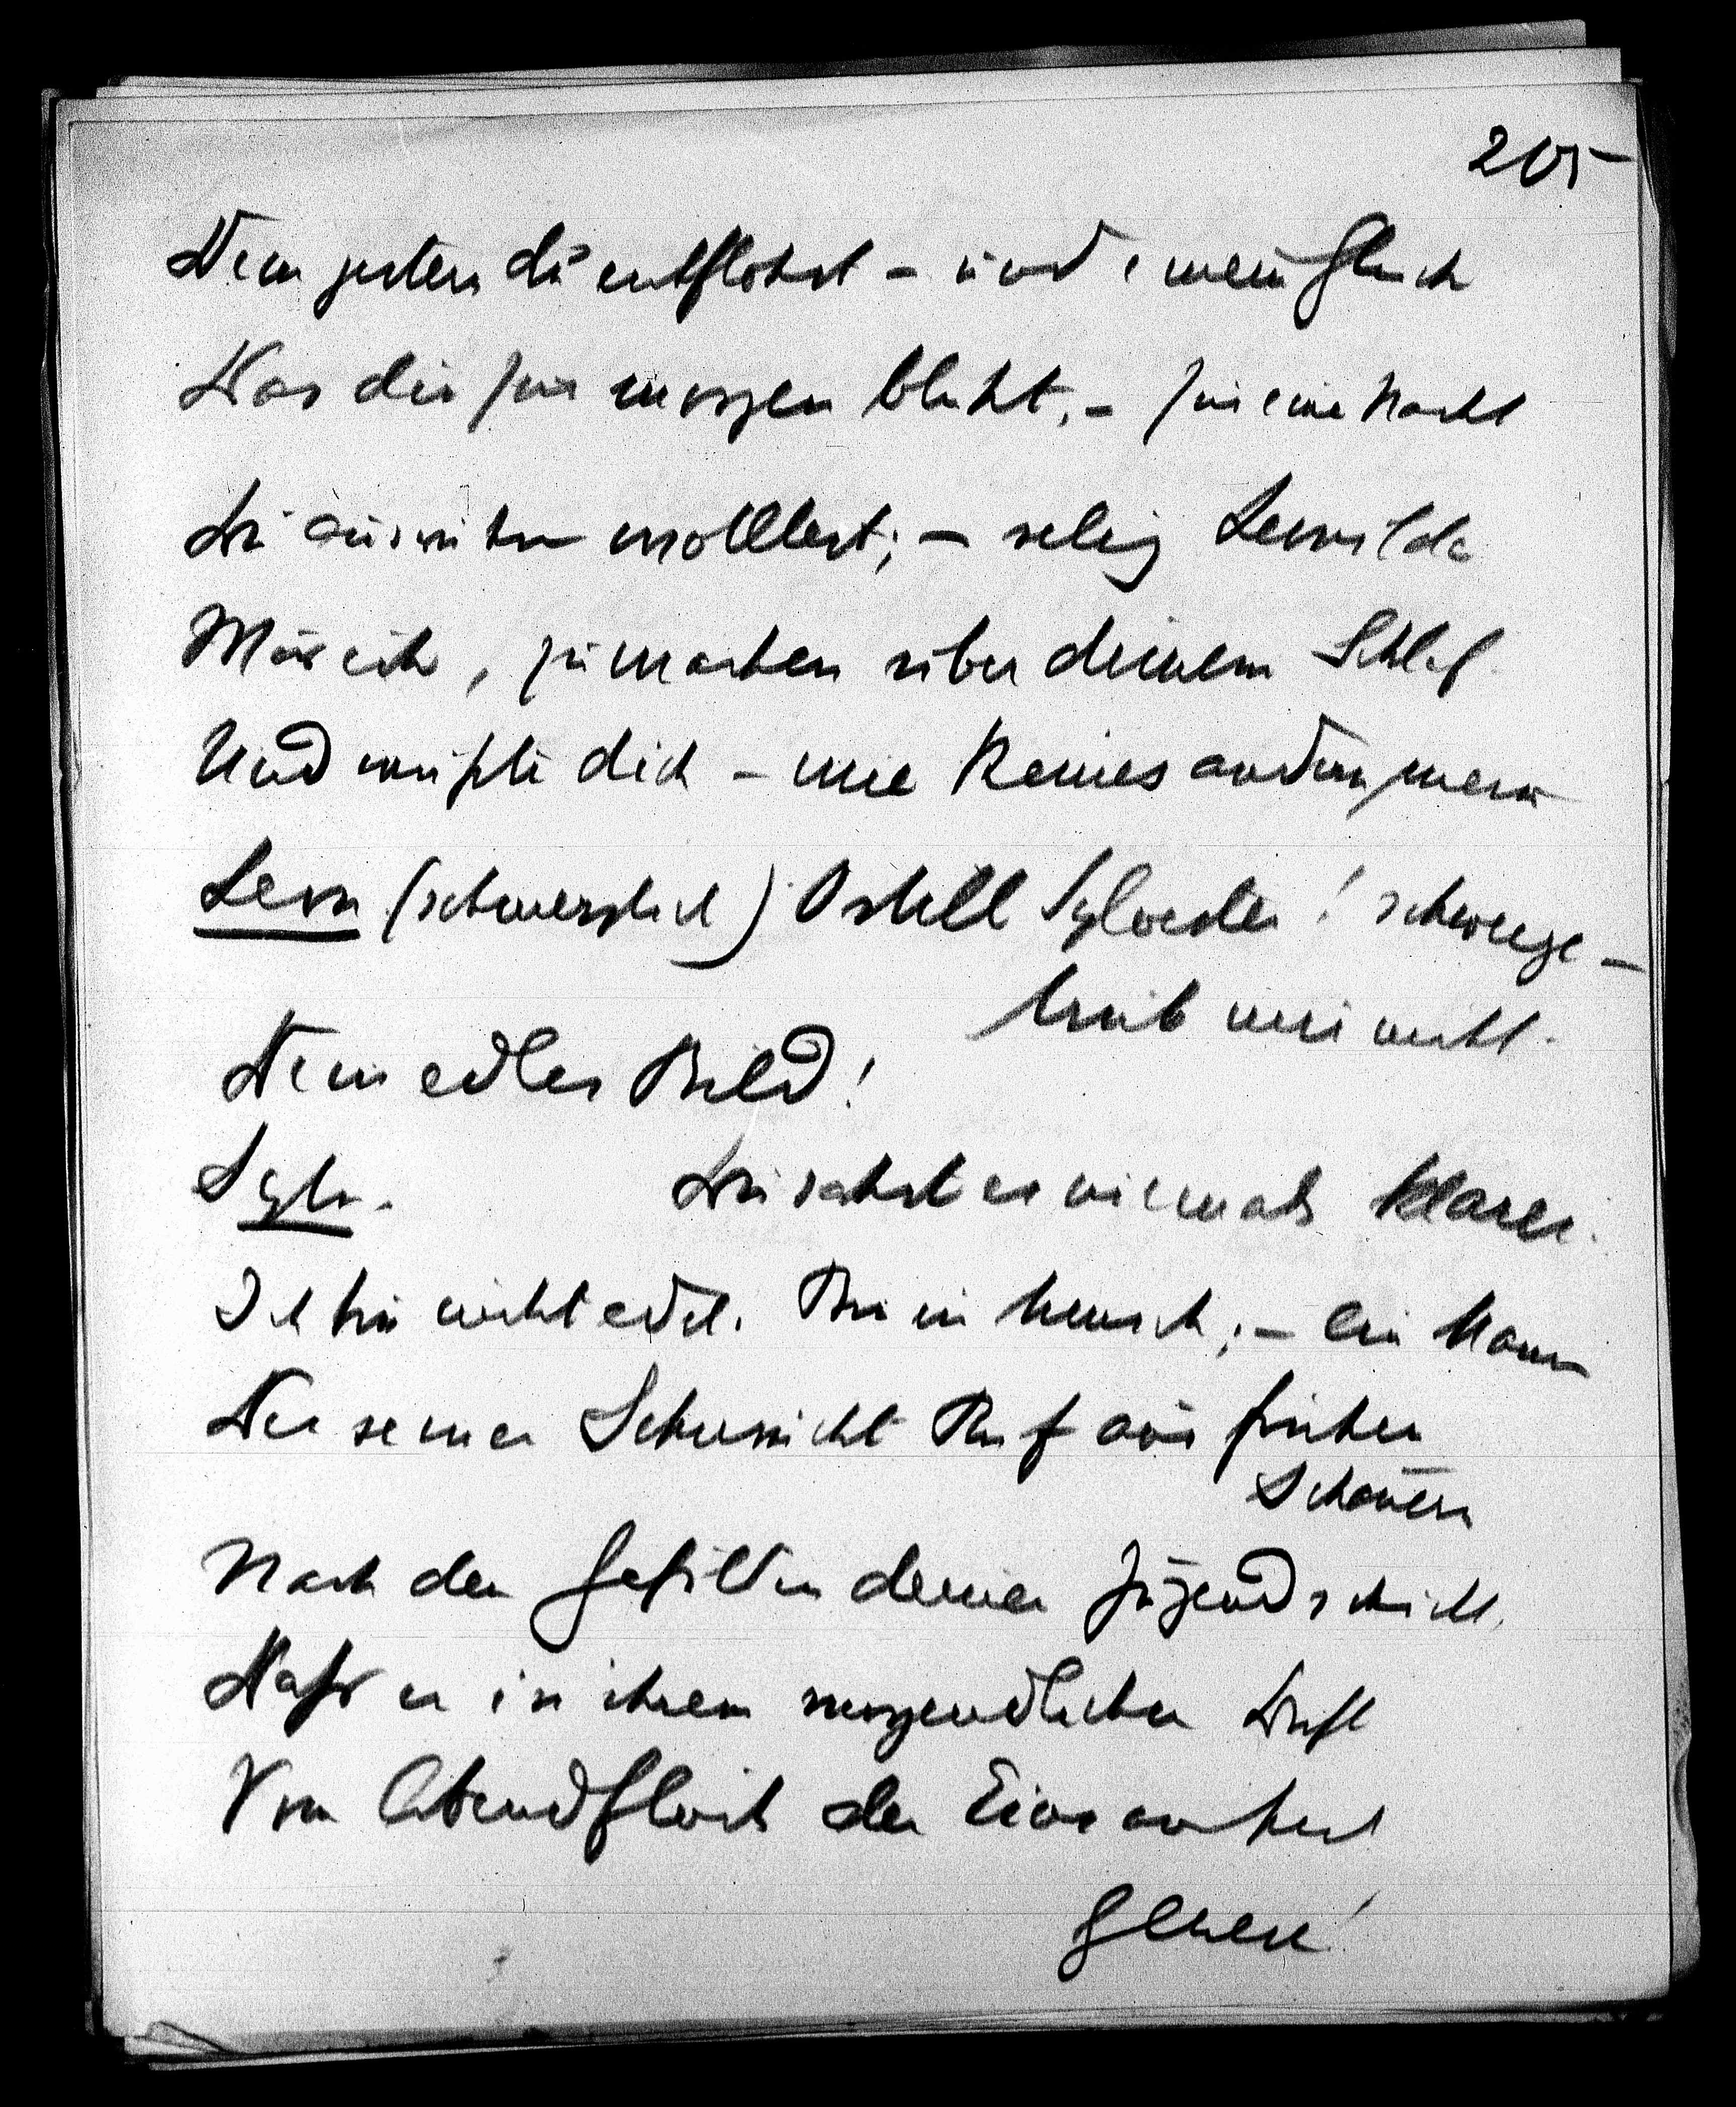 205
Dem gestern du entflohst – und einem Glück
Das dir für morgen blüht, – für eine Nacht
Du ausruhn wolltest; – selig Leonilda
Wär ich, zu wachen über deinem Schlaf
Und wüßte dich – wie keines andern, mein
Leon (schmerzlich) O still Sylvester! schweige –
Trüb mir nicht
Dein edles Bild!
Sylv. Du sahst es niemals klarer.
Ich bin nicht edel. Bin ein Mensch; – ein Mann
Der seiner Sehnsucht Ruf aus frühen
Schauern
Nach den Gefilden deiner Jugend schickt,
Daß er in ihrem morgendlichen Duft
Vom Abendfluch der Einsamkeit
Genese!